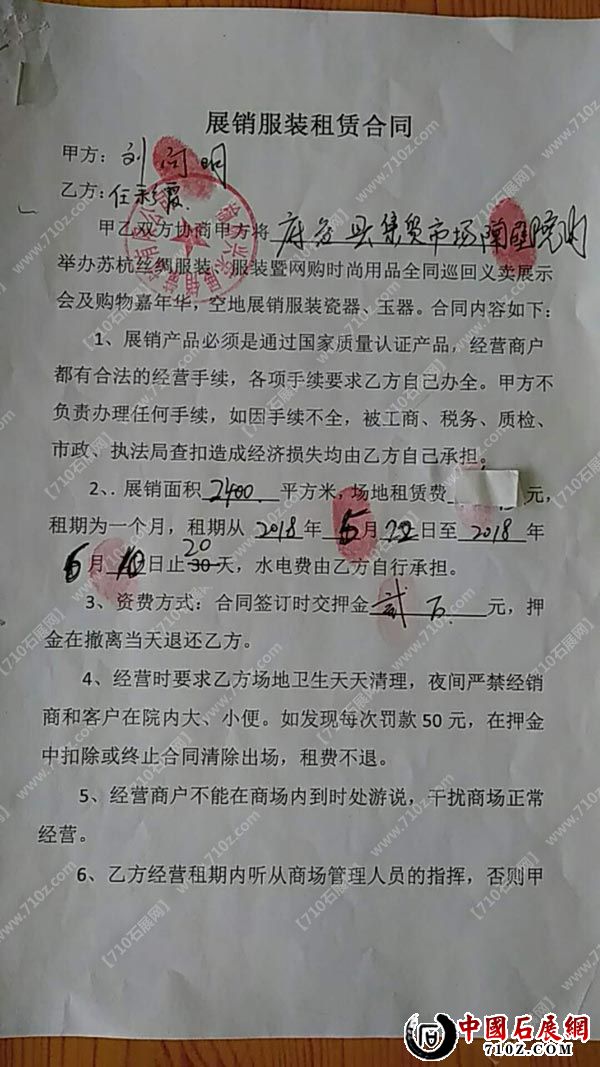 展销服装租赁合同
甲方：刘向明
乙方：任彩霞
甲乙双方协商甲方将 府谷县集贸市场 院内
举办苏杭丝绸服装、服装暨网购时尚用品全同巡回义卖展示
会及购物嘉年华，空地展销服装瓷器、玉器。合同内容如下：
1、展销产品必须是通过国家质量认证产品，经营商户
都有合法的经营手续，各项手续要求乙方自己办全。甲方不
负责办理任何手续，如因手续不全，被工商、税务、质检、
市政、执法局查扣造成经济损失均由乙方自己承担。
2、. 展销面积 2400. 平方米，场地租赁费 元，
租期为一个月，租期从 2018 年 5 月 22 日至 2018 年
6 月 10 日止 20 30 天，水电费由乙方自行承担。
3、资费方式：合同签订时交押金 贰万 元，押
金在撤离当天退还乙方。
4、经营时要求乙方场地卫生天天清理，夜间严禁经销
商和客户在院内大、小便。如发现每次罚款 50 元，在押金
中扣除或终止合同清除出场，租费不退。
5、经营商户不能在商场内到时处游说，干扰商场正常
经营。
6、乙方经营租期内听从商场管理人员的指挥，否则甲
中國石展網
710Z.COM
【710石展网】
www.710z.com